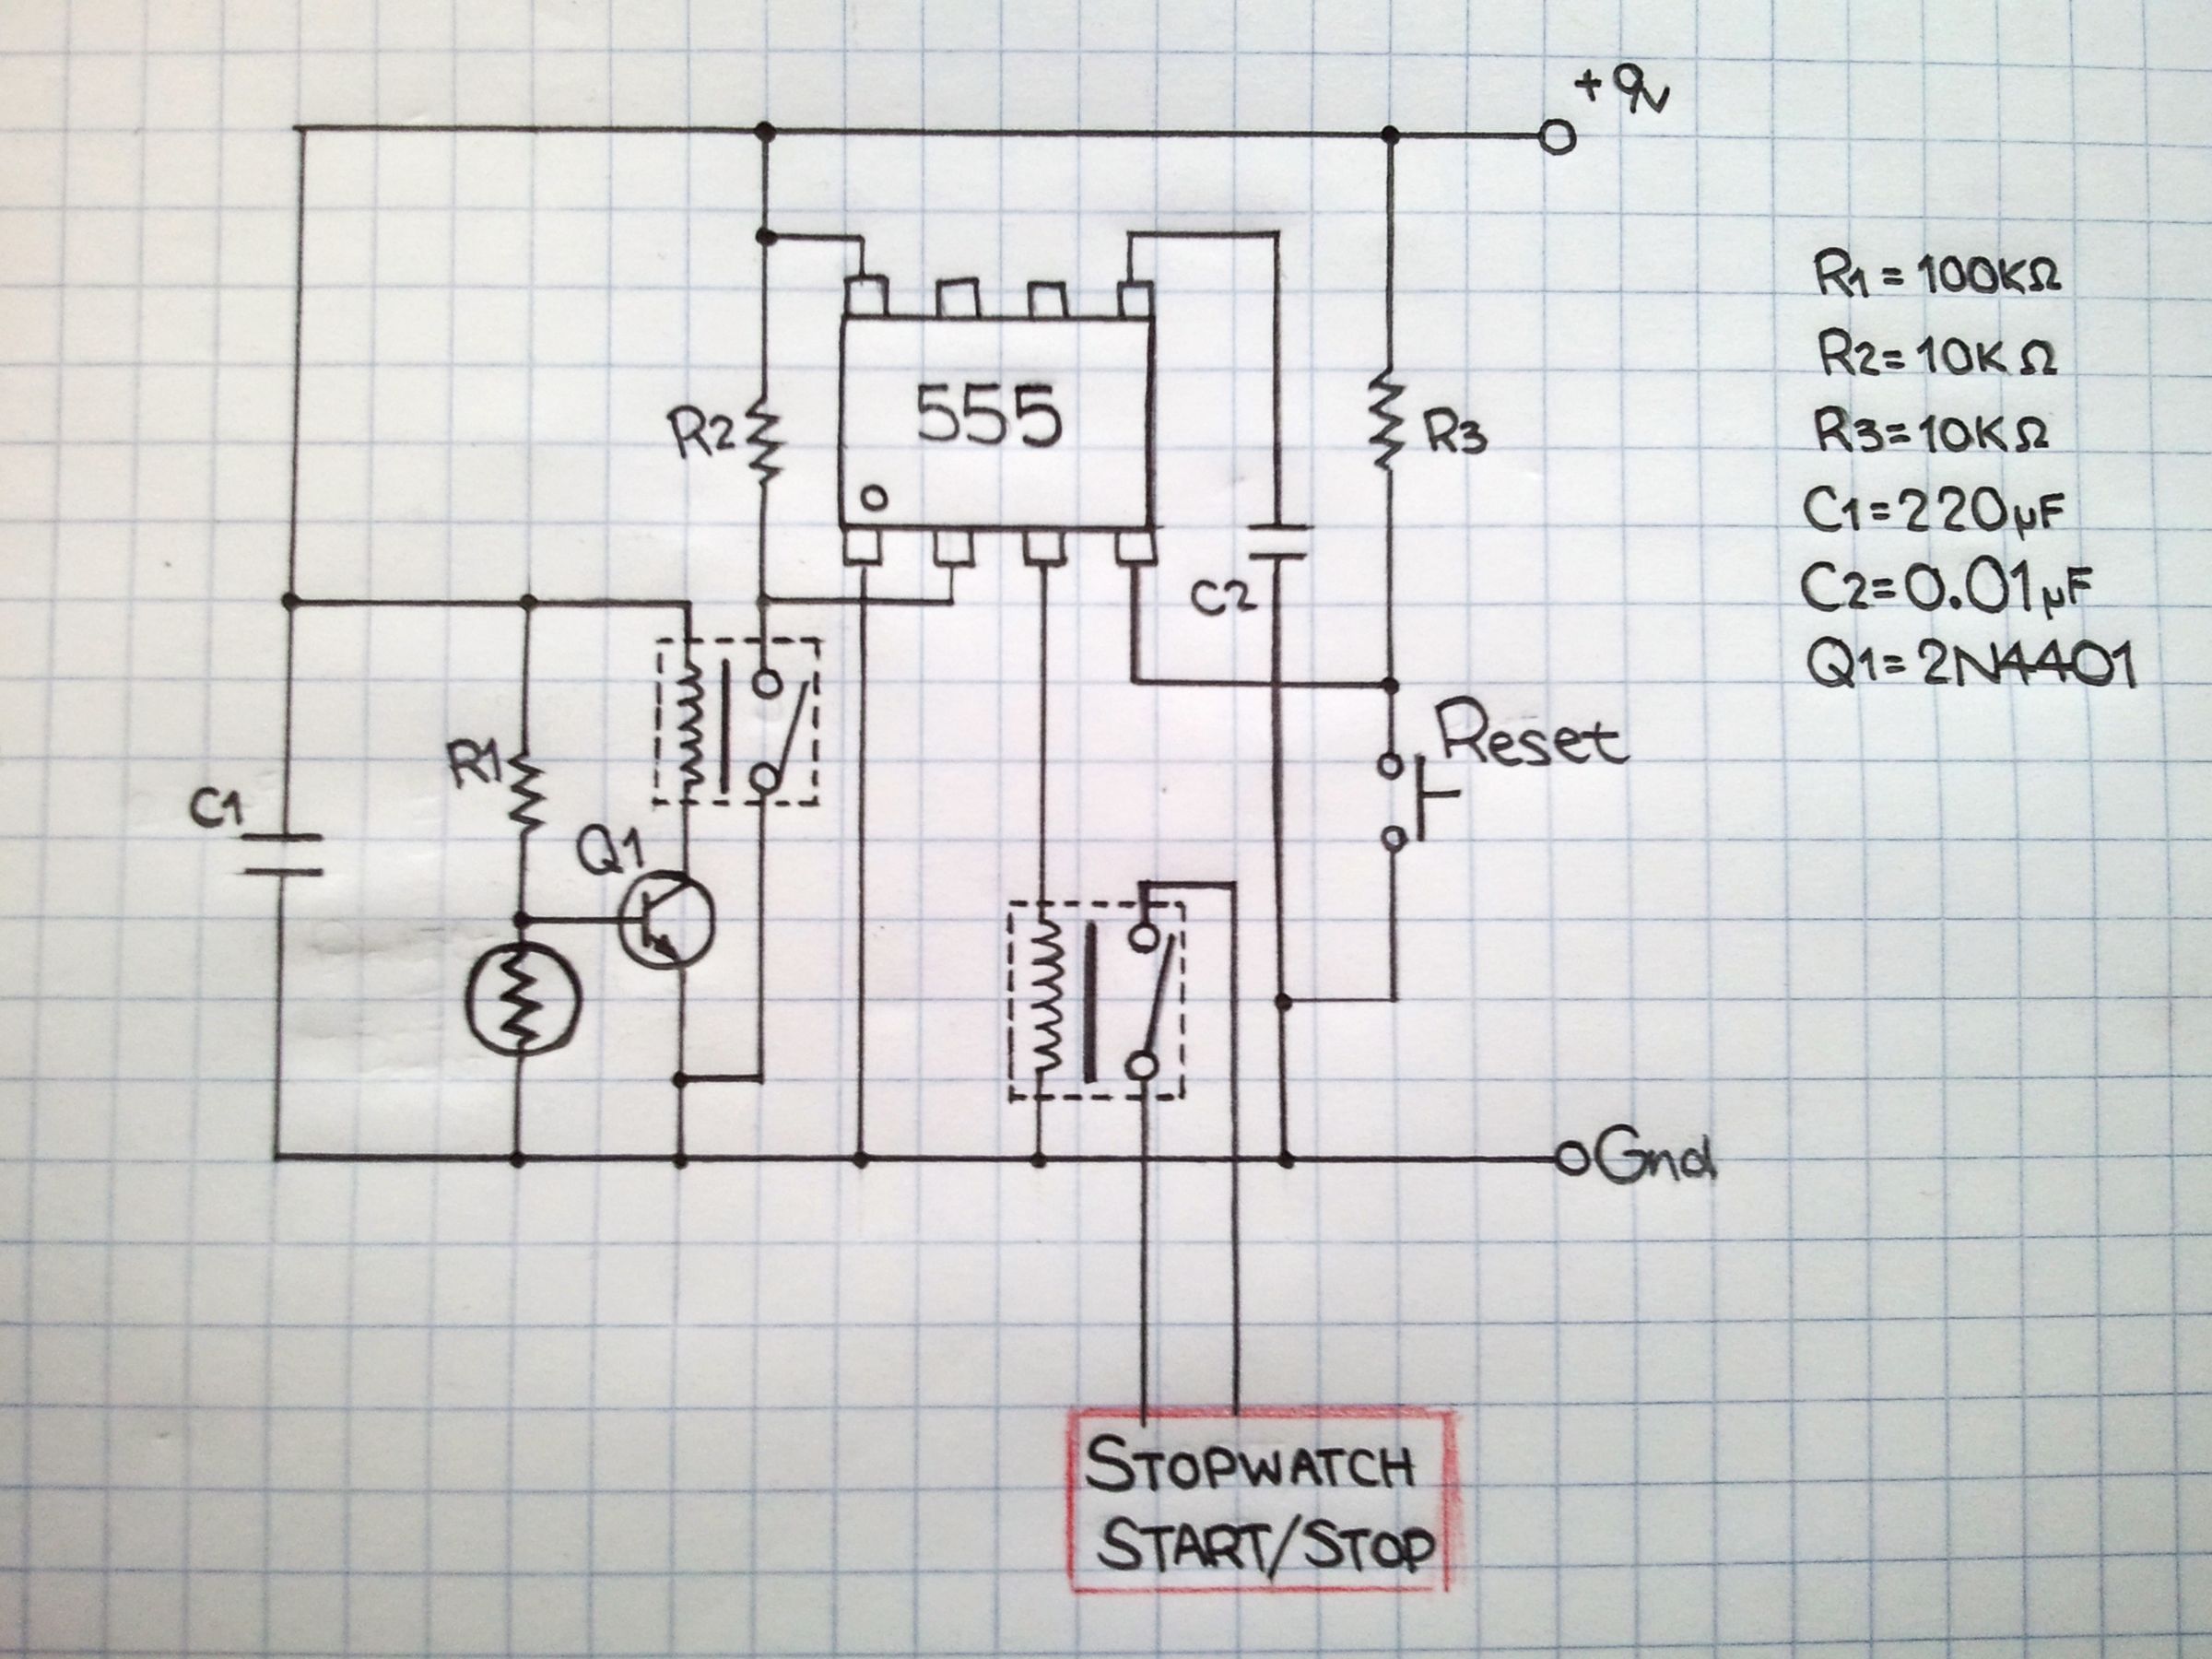 +9v
R1=100KΩ
555
R2=10KΩ
R2
R3
R3=10KΩ
C1=220µF
C2=0.01µF
C2
Q1=2N4401
Reset
R1
C1
Q1
Gnd
STOPWATCH
START/STOP